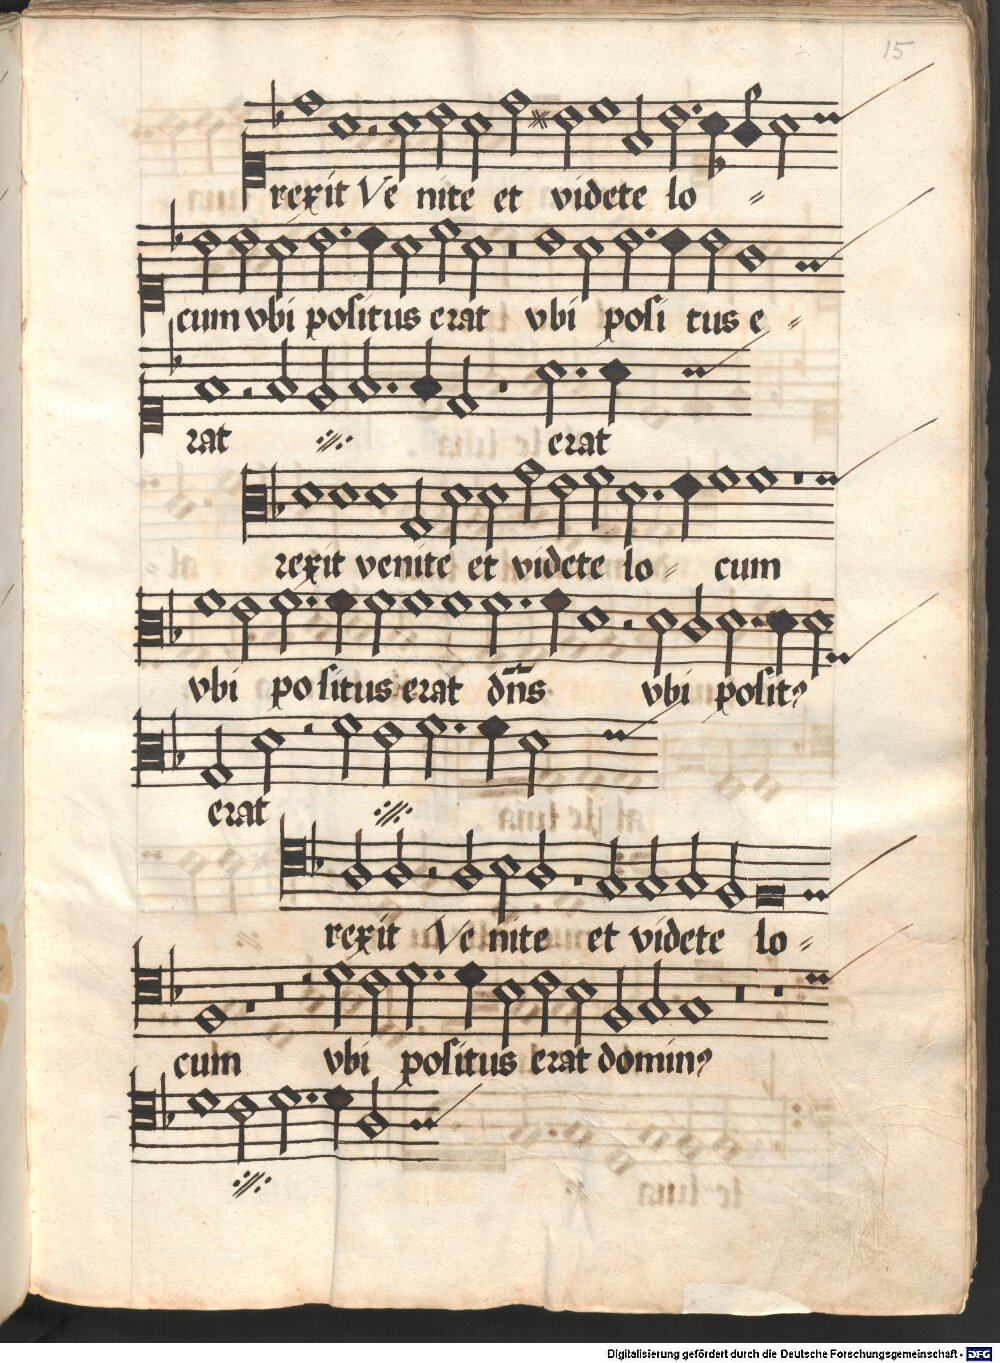 15
rexit Ve nite et videte lo =
cum vbi positus erat vbi posi tus e =
rat :||: erat
rexit venite et videte lo = cum
vbi positus erat dn̄s vbi posit9
erat :||:
rexit Venite et videte lo =
cum vbi positus erat domin9
:||:
Digitalisierung gefördert durch die Deutsche Forschungsgemeinschaft - DFG